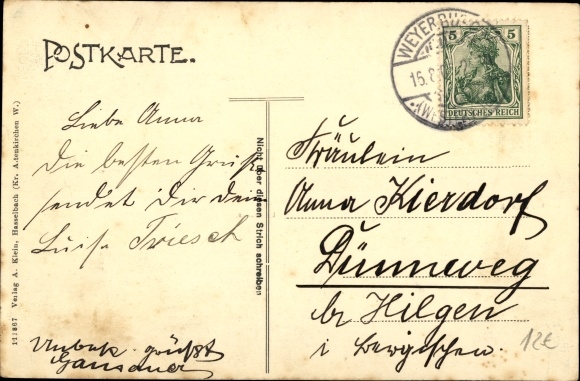 POSTKARTE.
WEYERBUSCH
15.8.
5 5
DEUTSCHES REICH
Liebe Anna
Die besten Grüße
sendet Dir Deine
Luise Triesch
Unbek. grüßt
Nicht über diesen Strich schreiben
111867 Verlag A. Klein, Hasselbach (Kr. Altenkirchen W.)
Fräulein
Anna Kierdorf
Dünnweg
br Hilgen
i Bergischen.
12€